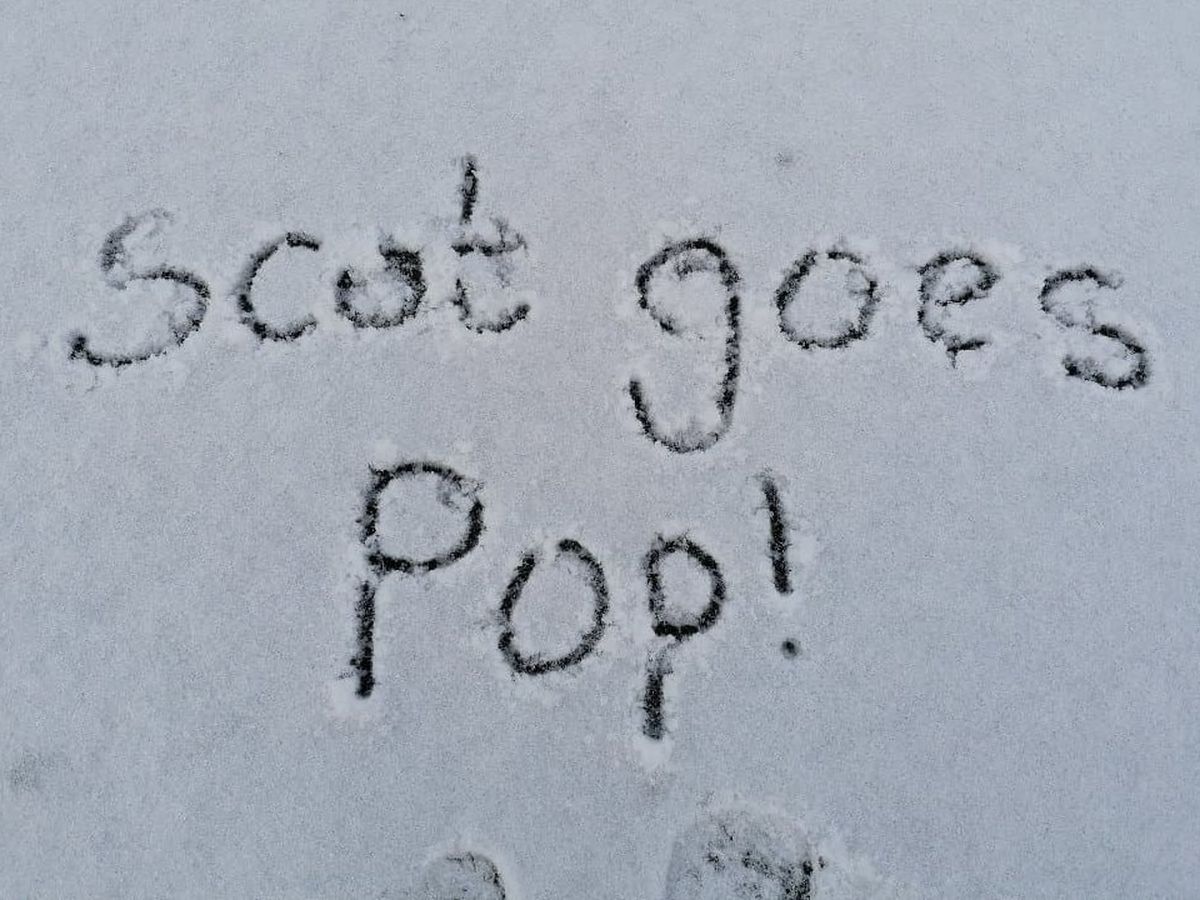 Scot goes
Pop!